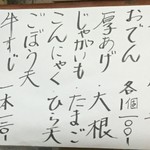 おでん 各個一〇〇!
厚あげ・大根
じゃがいも・たまご
こんにゃく ひら天
ごぼう天
牛すじ 一本一二〇!